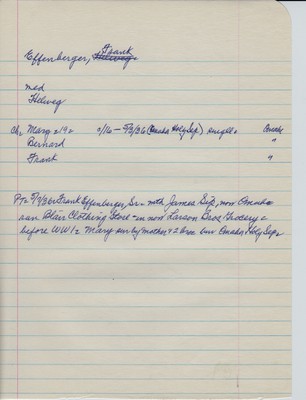 Frank
Effenberger, Helweg
med
Helweg
Ch. Mary a 19a 2/16 - 5/3/36 (Omaha Holy Sep) single Omaha
Bernard "
Frank "
Frank Effenberger, Sr. mth James now Omaha
ran Blair Clothing Store in now Larson Bros Grocery
before WW 1. Mary sur by mother + 2 bros bur Omaha Holy Sep.